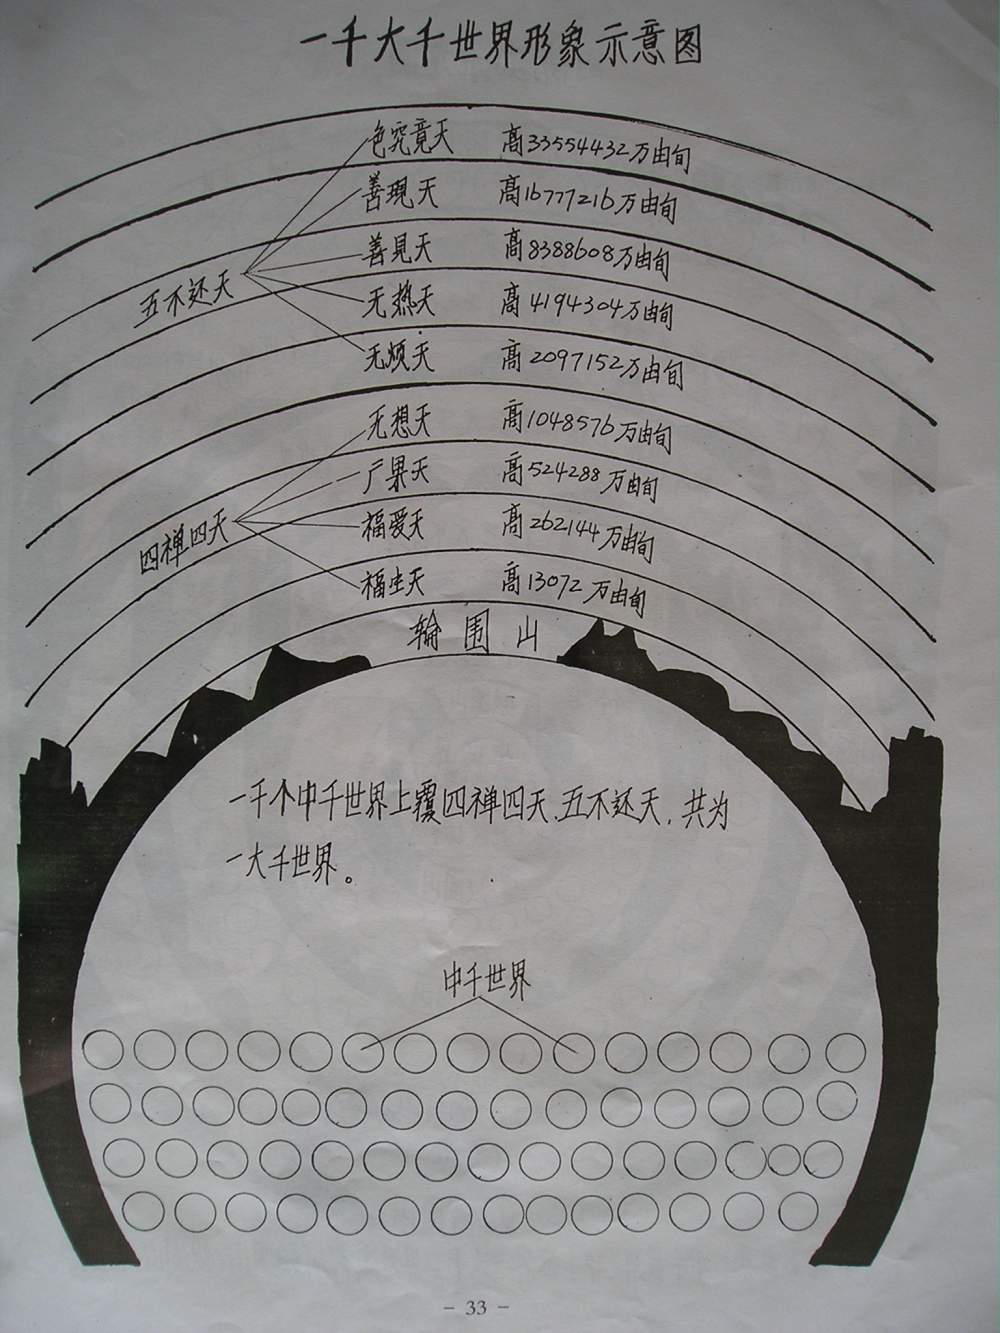 一千大千世界形象示意图
色究竟天 高33554432万由旬
善现天 高16777216万由旬
善見天 高8388608万由旬
五不还天
无热天 高4194304万由旬
无烦天 高2097152万由旬
无想天 高1048576万由旬
广果天 高524288万由旬
四禅四天
福爱天 高262144万由旬
福生天 高13072万由旬
輪围山
一千个中千世界上覆四禅四天、五不还天，共为
一大千世界。
中千世界
- 33 -